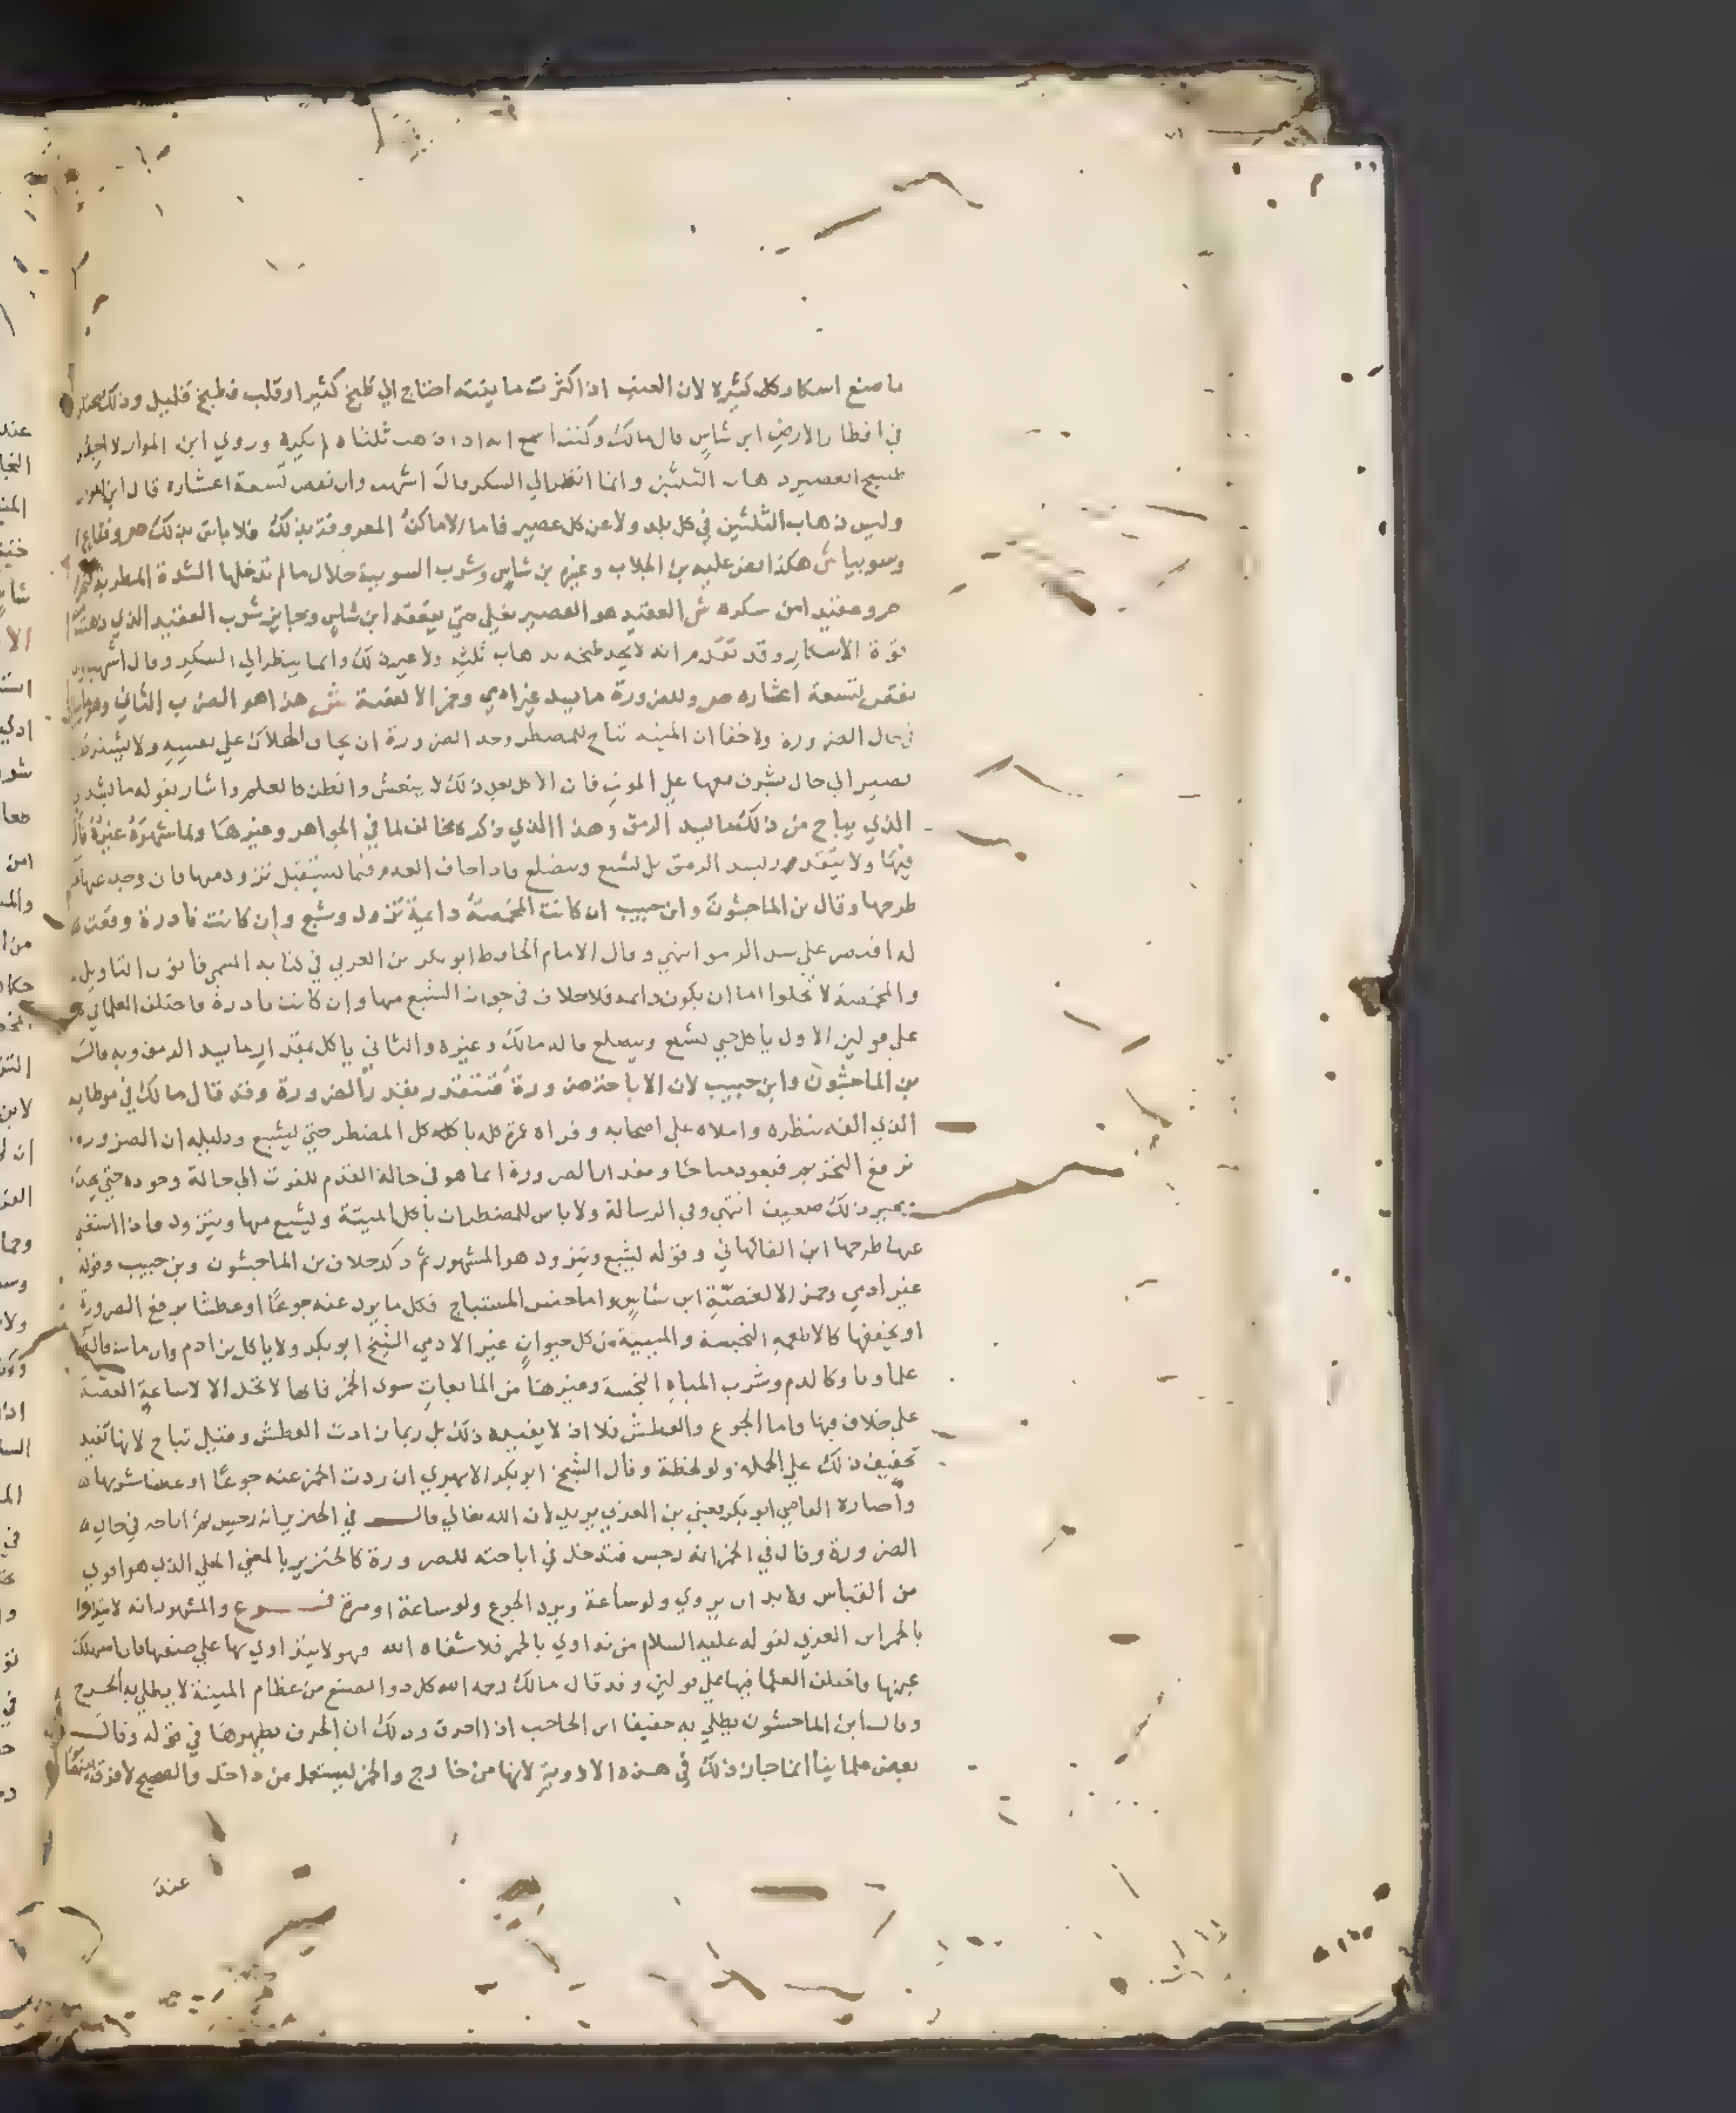 ما منع اسكار كل كثيره لان العنب اذا كثرت مائيته احتاج الي طبخ كثير او قلت فطبخ قليل وذلك يختلف
في اقطار الارض ابن شاس قال مالك وكنت اسمع انه اذا ذهب ثلثاه لم يكره وروي ابن المواز لا احد
طبيخ العصير ذهاب الثلثين وانما انظر الي السكر قال اشهب وان نقص تسعة اعشاره قال ابن المواز
وليس ذهاب الثلثين في كل بلد ولا عن كل عصير فاما الاماكن المعروفة بذلك فلا باس بذلك ص وفقاع
وسوبيا ش هكذا نص عليه بن الجلاب وغيره بن شاس وشرب السوبية حلال ما لم تدخلها الشدة المطربة
ص وعقيد امن سكره ش العقيد هو العصير يغلي حتي يعقد ابن شاس ويجايز شرب العقيد الذي ذهبت
قوة الاسكار وقد تقدم انه لا يحد طبخه بذهاب ثلثه ولا غير ذلك وانما ينظر الي السكر وقال اشهب
نقص لتسعة اعشاره ص وللضرورة ما يسد غير ادمي وخمر الا لغصة ش هذا هو الضرب الثاني وهو
في حال الضرورة ولا خفا ان الميتة تباح للمضطر وحد الضرورة ان يخاف الهلاك علي نفسه ولا يشترط
يصير الي حال يشرف معها علي الموت فان الاكل بعد ذلك لا ينعش والظن كالعلم واشار بقوله ما يسد
الذي يباح من ذلك ما يسد الرمق وهذا الذي ذكره مخالف لما في الجواهر وغيرها ولما شهره غيره قال
فيها ولا يتقدر بسد الرمق بل يشبع ويتضلع فاذا خاف العدم فيما يستقبل تزود منها فان وجد عنها غني
طرحها وقال بن الماجشون وابن حبيب ان كانت المخمصة داعية تزود وشبع وان كانت نادرة وقعت
له اقتصر علي سد الرمق انتهي وقال الامام الحافظ ابو بكر بن العربي في كتابه المسمي قانون التاويل
والمخمصة لا تخلوا اما ان يكون دائمه فلا خلاف في جواز الشبع منها وان كانت نادرة فاختلف العلما في
علي قولين الاول ياكل حتي يشبع ويتضلع قاله مالك وغيره والثاني ياكل بمقدار ما يسد الرمق وبه قال
بن الماجشون وابن حبيب لان الاباحة ضرورة فتتقدر بقدر الضرورة وقد قال مالك في موطايه
الذي الفه بنظره واملاه علي اصحابه وقراه عمره كله ياكل المضطر حتي يشبع ودليله ان الضروره
ترفع التحريم فيعود مباحا ومقدار الضرورة انما هو في حالة العدم للقوت الي حالة وجوده حتي يجد
وغير ذلك ضعيف انتهي وفي الرسالة ولا باس للمضطر ان ياكل الميتة ويشبع منها ويتزود فاذا استغني
عنها طرحها ابن الفاكهاني وقوله يشبع ويتزود هو المشهور ثم ذكر خلاف بن الماجشون وبن حبيب وقوله
غير ادمي وخمر الا لغصة ابن شاس واما جنس المستباح فكل ما يرد عنه جوعا او عطشا يرفع الضرورة
او يخففها كالاطعمه النجسة والميتة من كل حيوان غير الادمي الشيخ ابو بكر ولا ياكل بن ادم وان مات قاله
علماونا وكالدم وشرب المياه النجسة وغيرها من المايعات سوي الخمر فانها لا تحل الا لاساغة الغصة
علي خلاف فيها واما الجوع والعطش فلا اذ لا يفيده ذلك بل ربما زادت العطش وقيل تباح لانها تفيد
تخفيف ذلك علي الجملة ولو لحظة وقال الشيخ ابو بكر الابهري ان ردت الخمر عنه جوعا او عطشا شربها
واختاره القاضي ابو بكر يعني بن العربي يريد لان الله تعالي قال في الخنزير انه رجس ثم اباحه في حال
الضرورة وقال في الخمر انه رجس فتدخل في اباحته للضرورة كالخنزير بالمعني الجلي الذي هو اقوي
من القياس ولا بد ان يروي ولو ساعة ويرد الجوع ولو ساعة او مرة فرع والمشهور انه لا يتداوا
بالخمر ابن العربي لقوله عليه السلام من تداوي بالخمر فلا شفاه الله وهو لا يتداوي بها علي صفتها فان استهلك
عينها فاختلف العلما فيها علي قولين وقد قال مالك رحمه الله كل دوا يصنع من عظام الميتة لا يطلي به الجرح
وقال ابن الماجشون يطلي به حقيقا ابن الحاجب اذا احرق وذلك ان الحرق يطهرها في قوله وقال
بعض علماينا انما جاز ذلك في هذه الادوية لانها من خارج والخمر يستعمل من داخل والصحيح لا فرق بينهما
عند